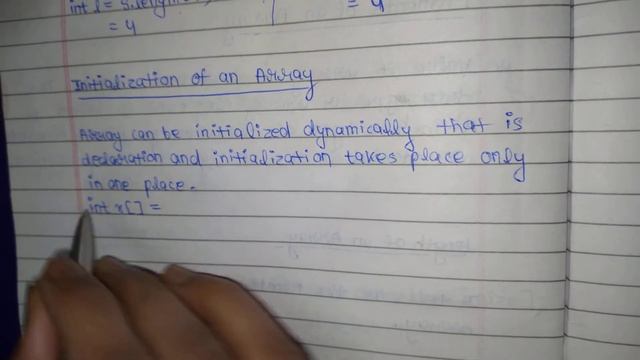 int l = s.length
= 4
= 4
Initialization of an Array
Array can be initialized dynamically that is
declaration and initialization takes place only
in one place.
int x[] =